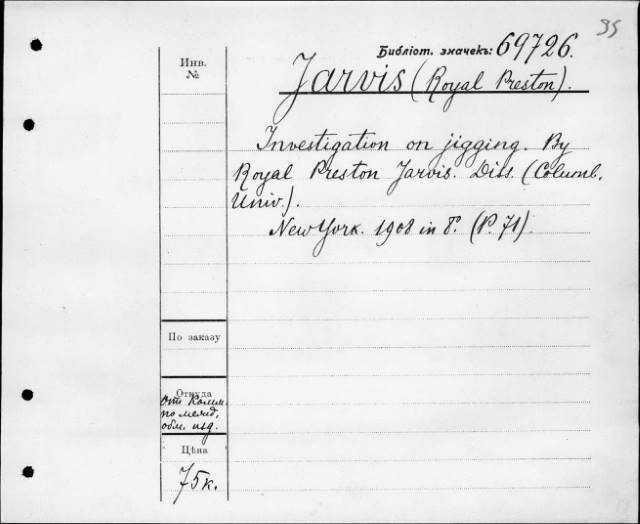 35
Библіот. значекъ: 69726.
Инв.
№
Jarvis (Royal Preston).
Investigation on jigging. By
Royal Preston Jarvis. Diss. (Columb.
Univ.).
New York. 1908 in 8°. (P. 71).
По заказу
Откуда
отъ Комм.
по межд.
обм. изд.
Цѣна
75 к.